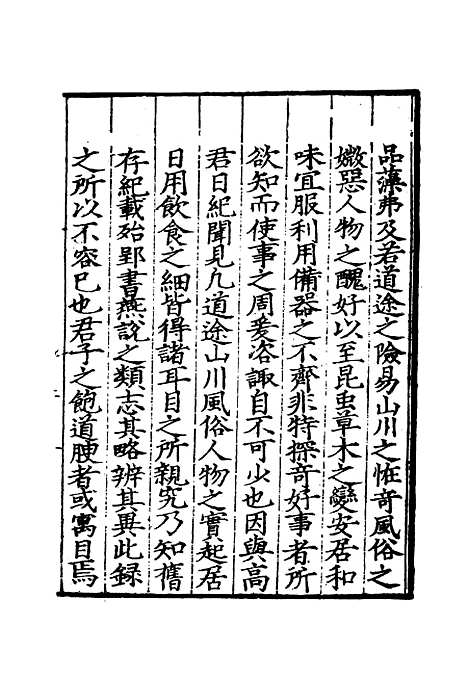 品藻弗及若道途之險易山川之恠竒風俗之
媺惡人物之醜好以至昆虫草木之變安居和
味宜服利用備器之不齊非特探竒好事者所
欲知而使事之周爰咨諏自不可少也因與高
君日紀聞見凡道途山川風俗人物之實起居
日用飲食之細皆得諸耳目之所親究乃知舊
存紀載殆郢書燕說之類志其略辨其異此錄
之所以不容已也君子之飽道腴者或寓目焉